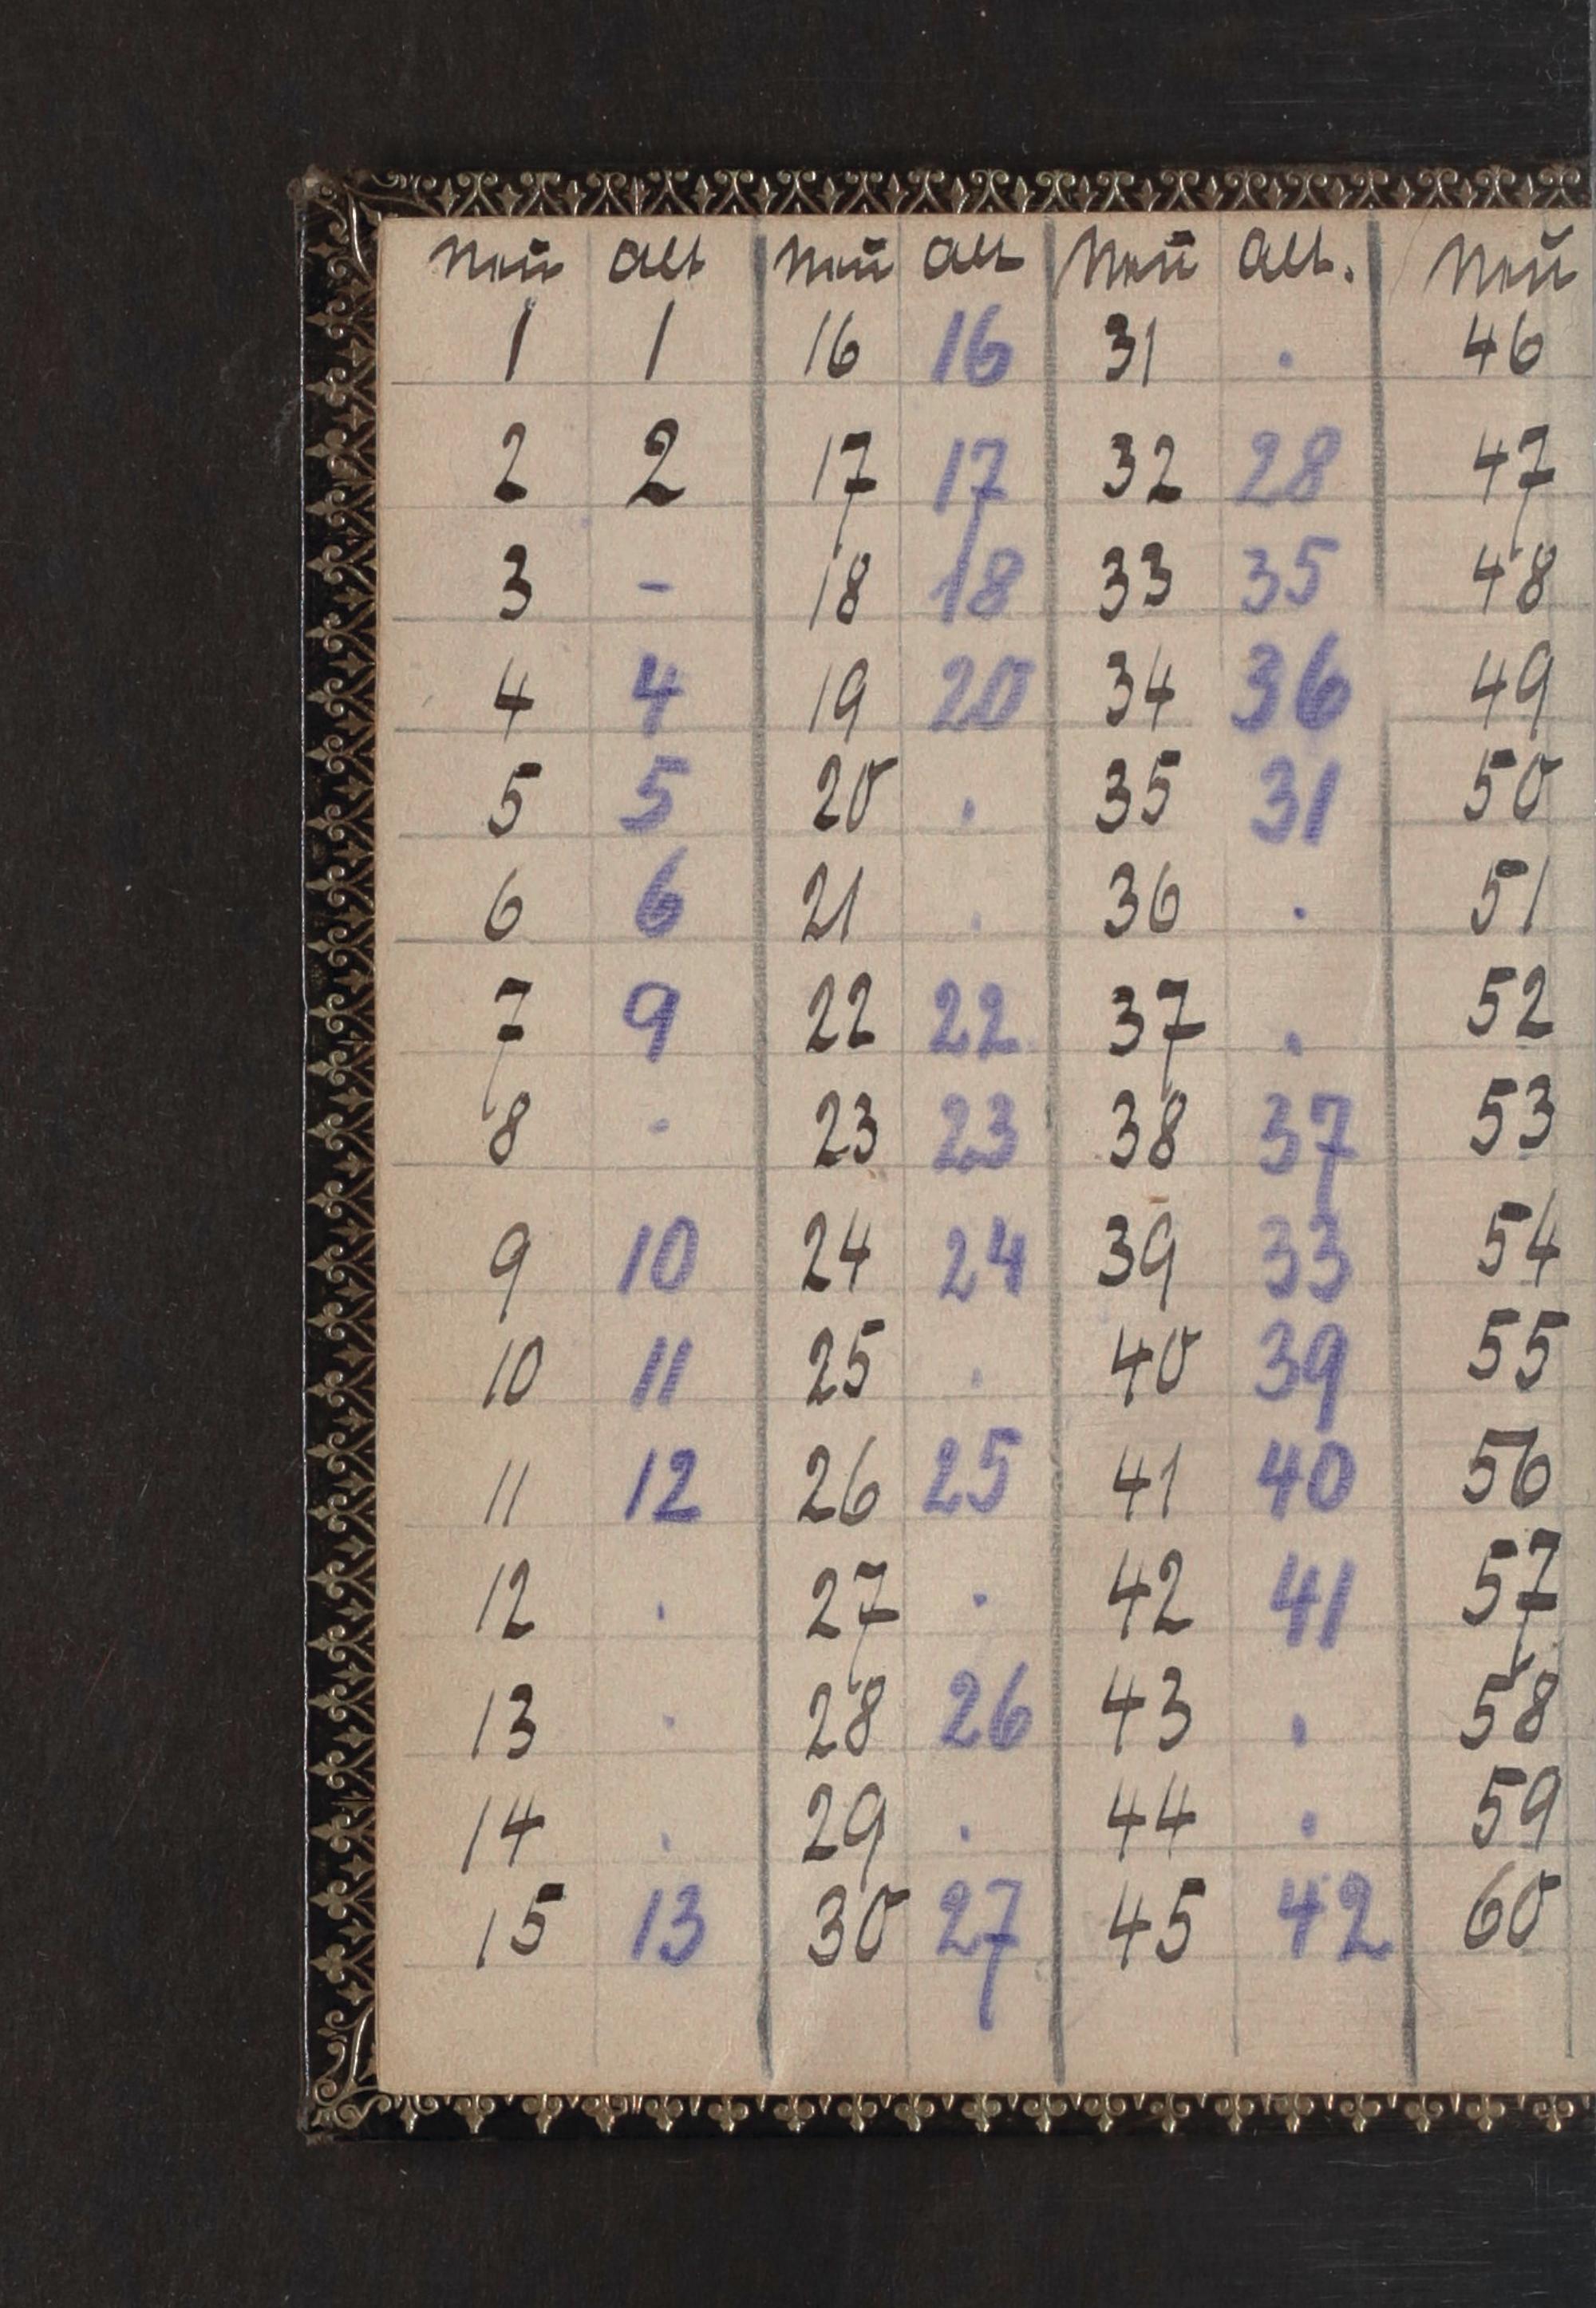 Neu alt Neu alt Neu alt. Neu
1 1 16 16 31 . 46
2 2 17 17 32 28 47
3 - 18 18 33 35 48
4 4 19 20 34 36 49
5 5 20 . 35 31 50
6 6 21 . 36 . 51
7 9 22 22 37 . 52
8 . 23 23 38 37 53
9 10 24 24 39 33 54
10 11 25 . 40 39 55
11 12 26 25 41 40 56
12 . 27 . 42 41 57
13 . 28 26 43 . 58
14 . 29 . 44 . 59
15 13 30 27 45 42 60